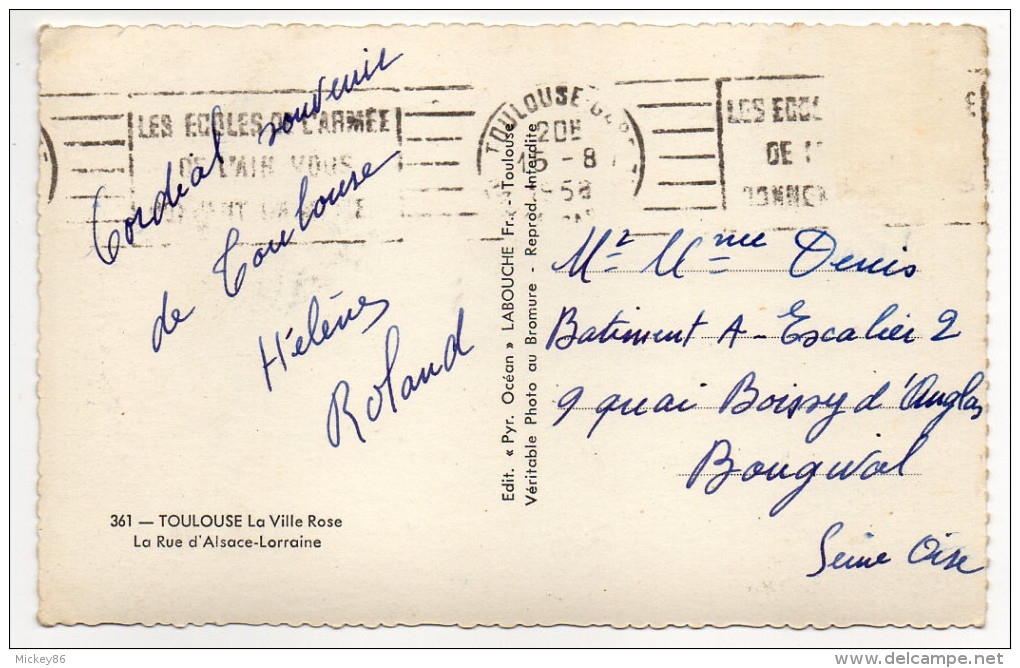 LES ECOLES DE L'ARMÉE
DE L'AIR VOUS
TOULOUSE
20H
16 - 8
1958
LES ECO
DE L'
DONNEN
Cordial souvenir
de Toulouse
Hélène
Roland
361 — TOULOUSE La Ville Rose
La Rue d'Alsace-Lorraine
Edit. « Pyr. Océan » LABOUCHE Fr. - Toulouse
Véritable Photo au Bromure - Reprod. Interdite
Mr Mme Denis
Batiment A - Escalier 2
9 quai Boissy d'Anglas
Bougival
Seine Oise
Mickey86
www.delcampe.net